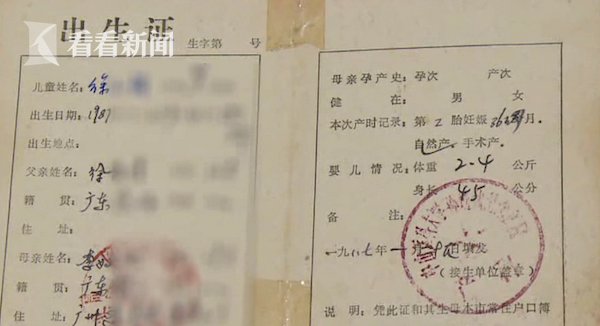 看看新闻
出生证
生字第 号
儿童姓名：徐
出生日期：1987
出生地点：
父亲姓名：徐
籍 贯：广东
住 址：
母亲姓名：李
籍 贯：广东
住 址：广州
母亲孕产史：孕次 产次
健 在： 男 女
本次产时记录：第2胎妊娠 月
自然产 手术产
婴儿情况：体重 2.4 公斤
身长 45 公分
备 注：
一九八七年一月 日填发
（接生单位盖章）
说明：凭此证和其生母本市常住户口簿